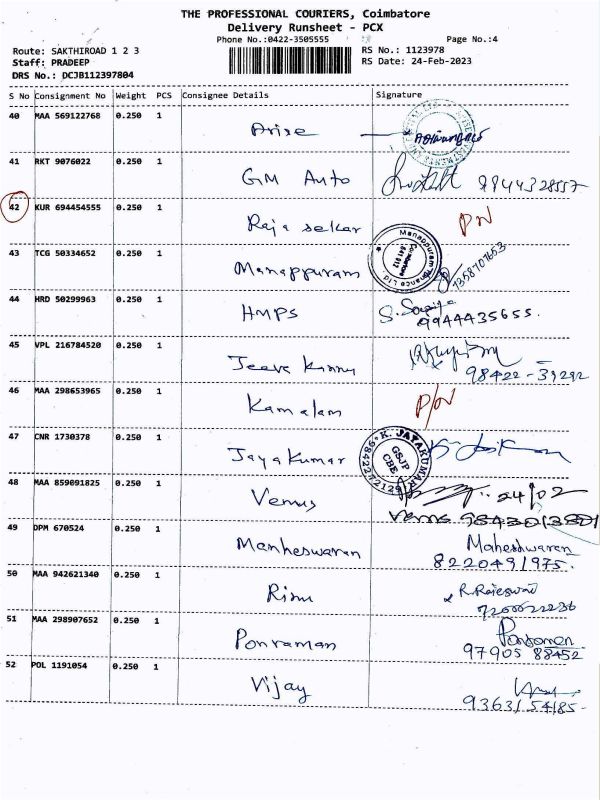 THE PROFESSIONAL COURIERS, Coimbatore
Delivery Runsheet - PCX
Phone No.:0422-3505555 Page No.:4
Route: SAKTHIROAD 1 2 3 RS No.: 1123978
Staff: PRADEEP RS Date: 24-Feb-2023
DRS No.: DCJB112397804
S No Consignment No Weight PCS Consignee Details Signature
40 MAA 569122768 0.250 1 Arise
41 RKT 9076022 0.250 1 GM Auto 9844328557
42 KUR 694454555 0.250 1 Raja sekar PN
43 TCG 50334652 0.250 1 Manappuram Manappuram Finance Ltd. Coimbatore 641 012 7358707653
44 HRD 50299963 0.250 1 HMPS 9944435655.
45 VPL 216784520 0.250 1 Jeeva Kannu 98422-39292
46 MAA 298653965 0.250 1 Kamalam P/N
47 CNR 1730378 0.250 1 Jaya Kumar K. JAYAKUMAR GSJP CBE
48 MAA 859091825 0.250 1 Venus 24/02
Venus 9843013801
49 DPM 670524 0.250 1 Manheswaran Maheshwaran
8220491975.
50 MAA 942621340 0.250 1 Rinu R. Rajeswari
7200022236
51 MAA 298907652 0.250 1 Ponraman
97905 88452
52 POL 1191054 0.250 1 Vijay
93631 54185-